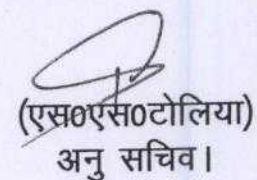 (एस0एस0टोलिया)
अनु सचिव।